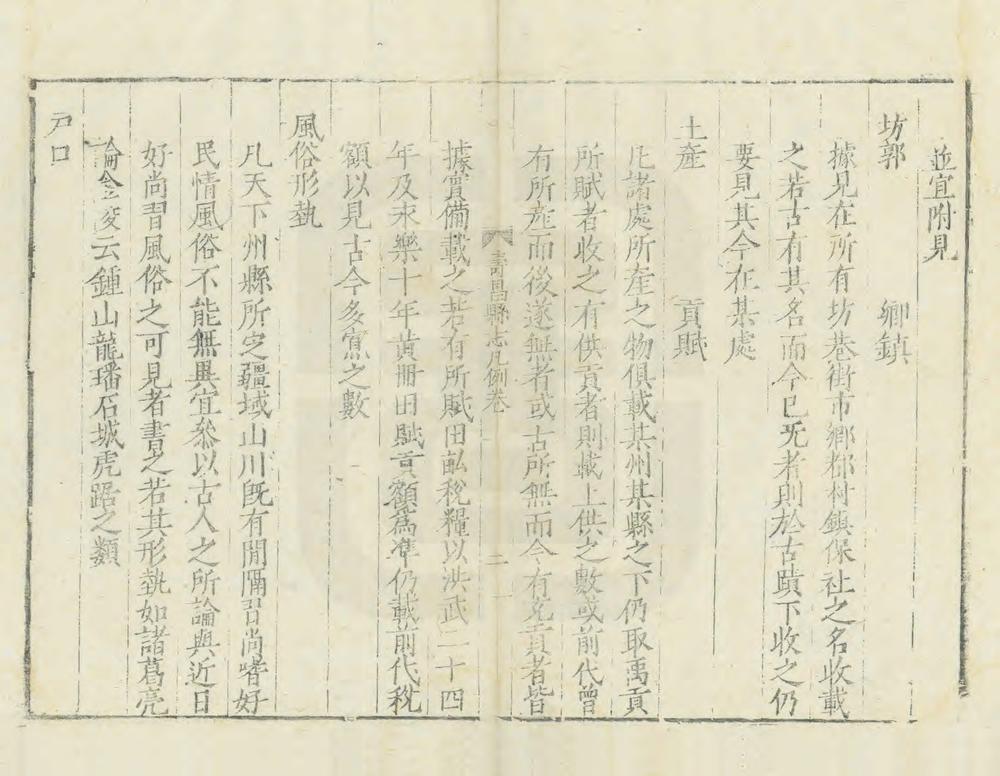 並宜附見
坊郭　鄉鎮
據見在所有坊巷街市鄉都村鎮保社之名收載
之若古有其名而今已旡者則於古蹟下收之仍
要見其今在某處
土產　貢賦
凡諸處所產之物俱載某州某縣之下仍取禹貢
所賦者收之有供貢者則載上供之數或前代曾
有所產而後遂無者或古所無而今有充貢者皆
壽昌縣志凡例卷　二
據實備載之若有所賦田畝稅糧以洪武二十四
年及永樂十年黃冊田賦貢額為準仍載前代稅
額以見古今多寡之數
風俗形埶
凡天下州縣所定疆域山川旣有間隔習尚嗜好
民情風俗不能無異宜叅以古人之所論與近日
好尚習風俗之可見者書之若其形埶如諸葛亮
論金陵云鍾山龍蟠石城虎踞之類
戶口